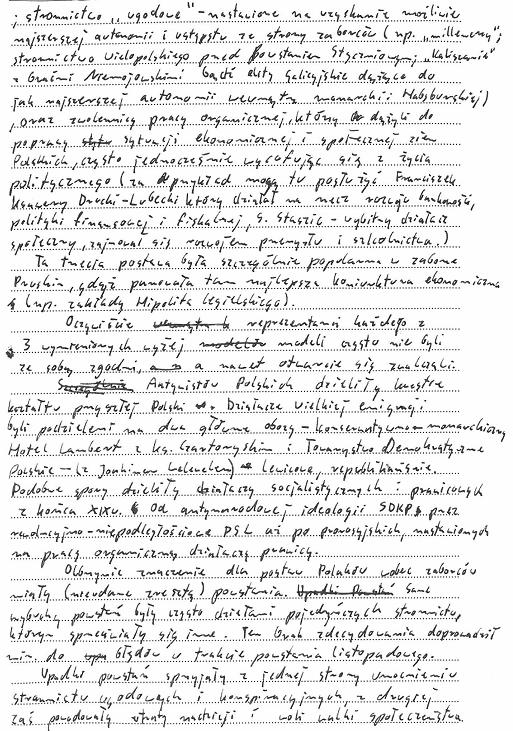 ; stronnictwo „ugodowe” - nastawione na uzyskanie możliwie
najszerszej autonomii i ustępstw ze strony zaborców (np. „millenerzy”;
stronnictwo Wielopolskiego przed Powstaniem Styczniowym; „Kaliszanie”
z braćmi Niemojowskimi bądź elity Galicyjskie dążące do
jak najszerszej autonomii wewnątrz monarchii Habsburskiej)
, oraz zwolennicy pracy organicznej, którzy dążyli do
poprawy sytuacji ekonomicznej i społecznej ziem
Polskich, często jednocześnie wycofując się z życia
politycznego (za przykład mogą tu posłużyć Franciszek
Ksawery Drucki-Lubecki który działał na rzecz rozwoju bankowości,
polityki finansowej i fiskalnej, S. Staszic - wybitny działacz
społeczny, zajmował się rozwojem przemysłu i szkolnictwa.)
Ta trzecia postawa była szczególnie popularna w zaborze
Pruskim, gdyż panowała tam najlepsza koniunktura ekonomiczna
(np. zakłady Hipolita Cegielskiego).
Oczywiście reprezentanci każdego z
3 wymienionych wyżej modeli często nie byli
ze sobą zgodni, a nawet otwarcie się zwalczali.
Antagonistów Polskich dzieliły kwestie
kształtu przyszłej Polski. Działacze wielkiej emigracji
byli podzieleni na dwa główne obozy - konserwatywno-monarchiczny
Hotel Lambert z ks. Czartoryskim i Towarzystwo Demokratyczne
Polskie - (z Joachimem Lelewelem) lewicowe, republikańskie.
Podobne spory dzieliły działaczy socjalistycznych i prawicowych
z końca XIXw. Od antynarodowej ideologii SDKP, przez
rewolucyjno-niepodległościowe PSL aż po prorosyjskich, nastawionych
na pracę organiczną działaczy prawicy.
Olbrzymie znaczenie dla postaw Polaków wobec zaborców
miały (nieudane zresztą) powstania. Same
wybuchy powstań były często dziełami pojedyńczych stronnictw,
którym sprzeciwiały się inne. Ten brak zdecydowania doprowadził
min. do błędów w trakcie powstania listopadowego.
Upadki powstań sprzyjały z jednej strony umocnieniu
stronnictw ugodowych i konspiracyjnych, z drugiej
zaś powodowały utraty nadziei i woli walki społeczeństwa.